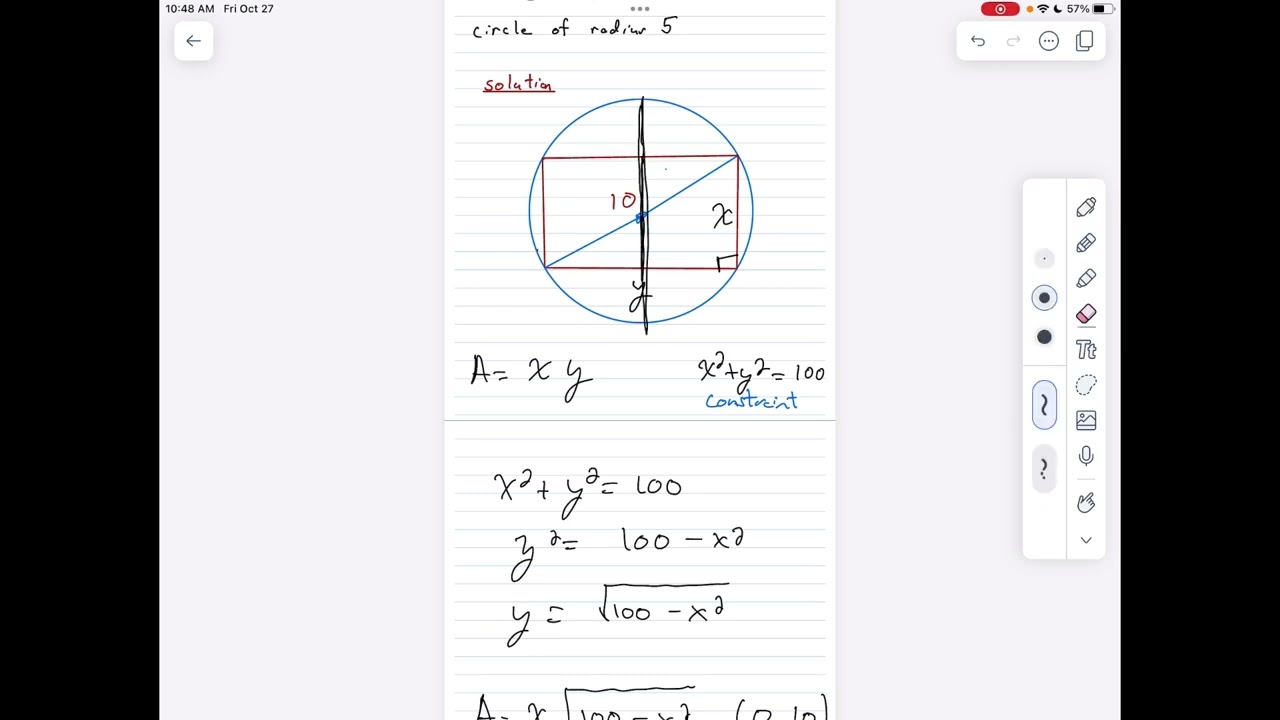 10:48 AM Fri Oct 27
57%
circle of radius 5
solution
10
x
y
A = x y
x² + y² = 100
constraint
x² + y² = 100
y² = 100 - x²
y = √100 - x²
A = x √100 - x² (0, 10)
Tt